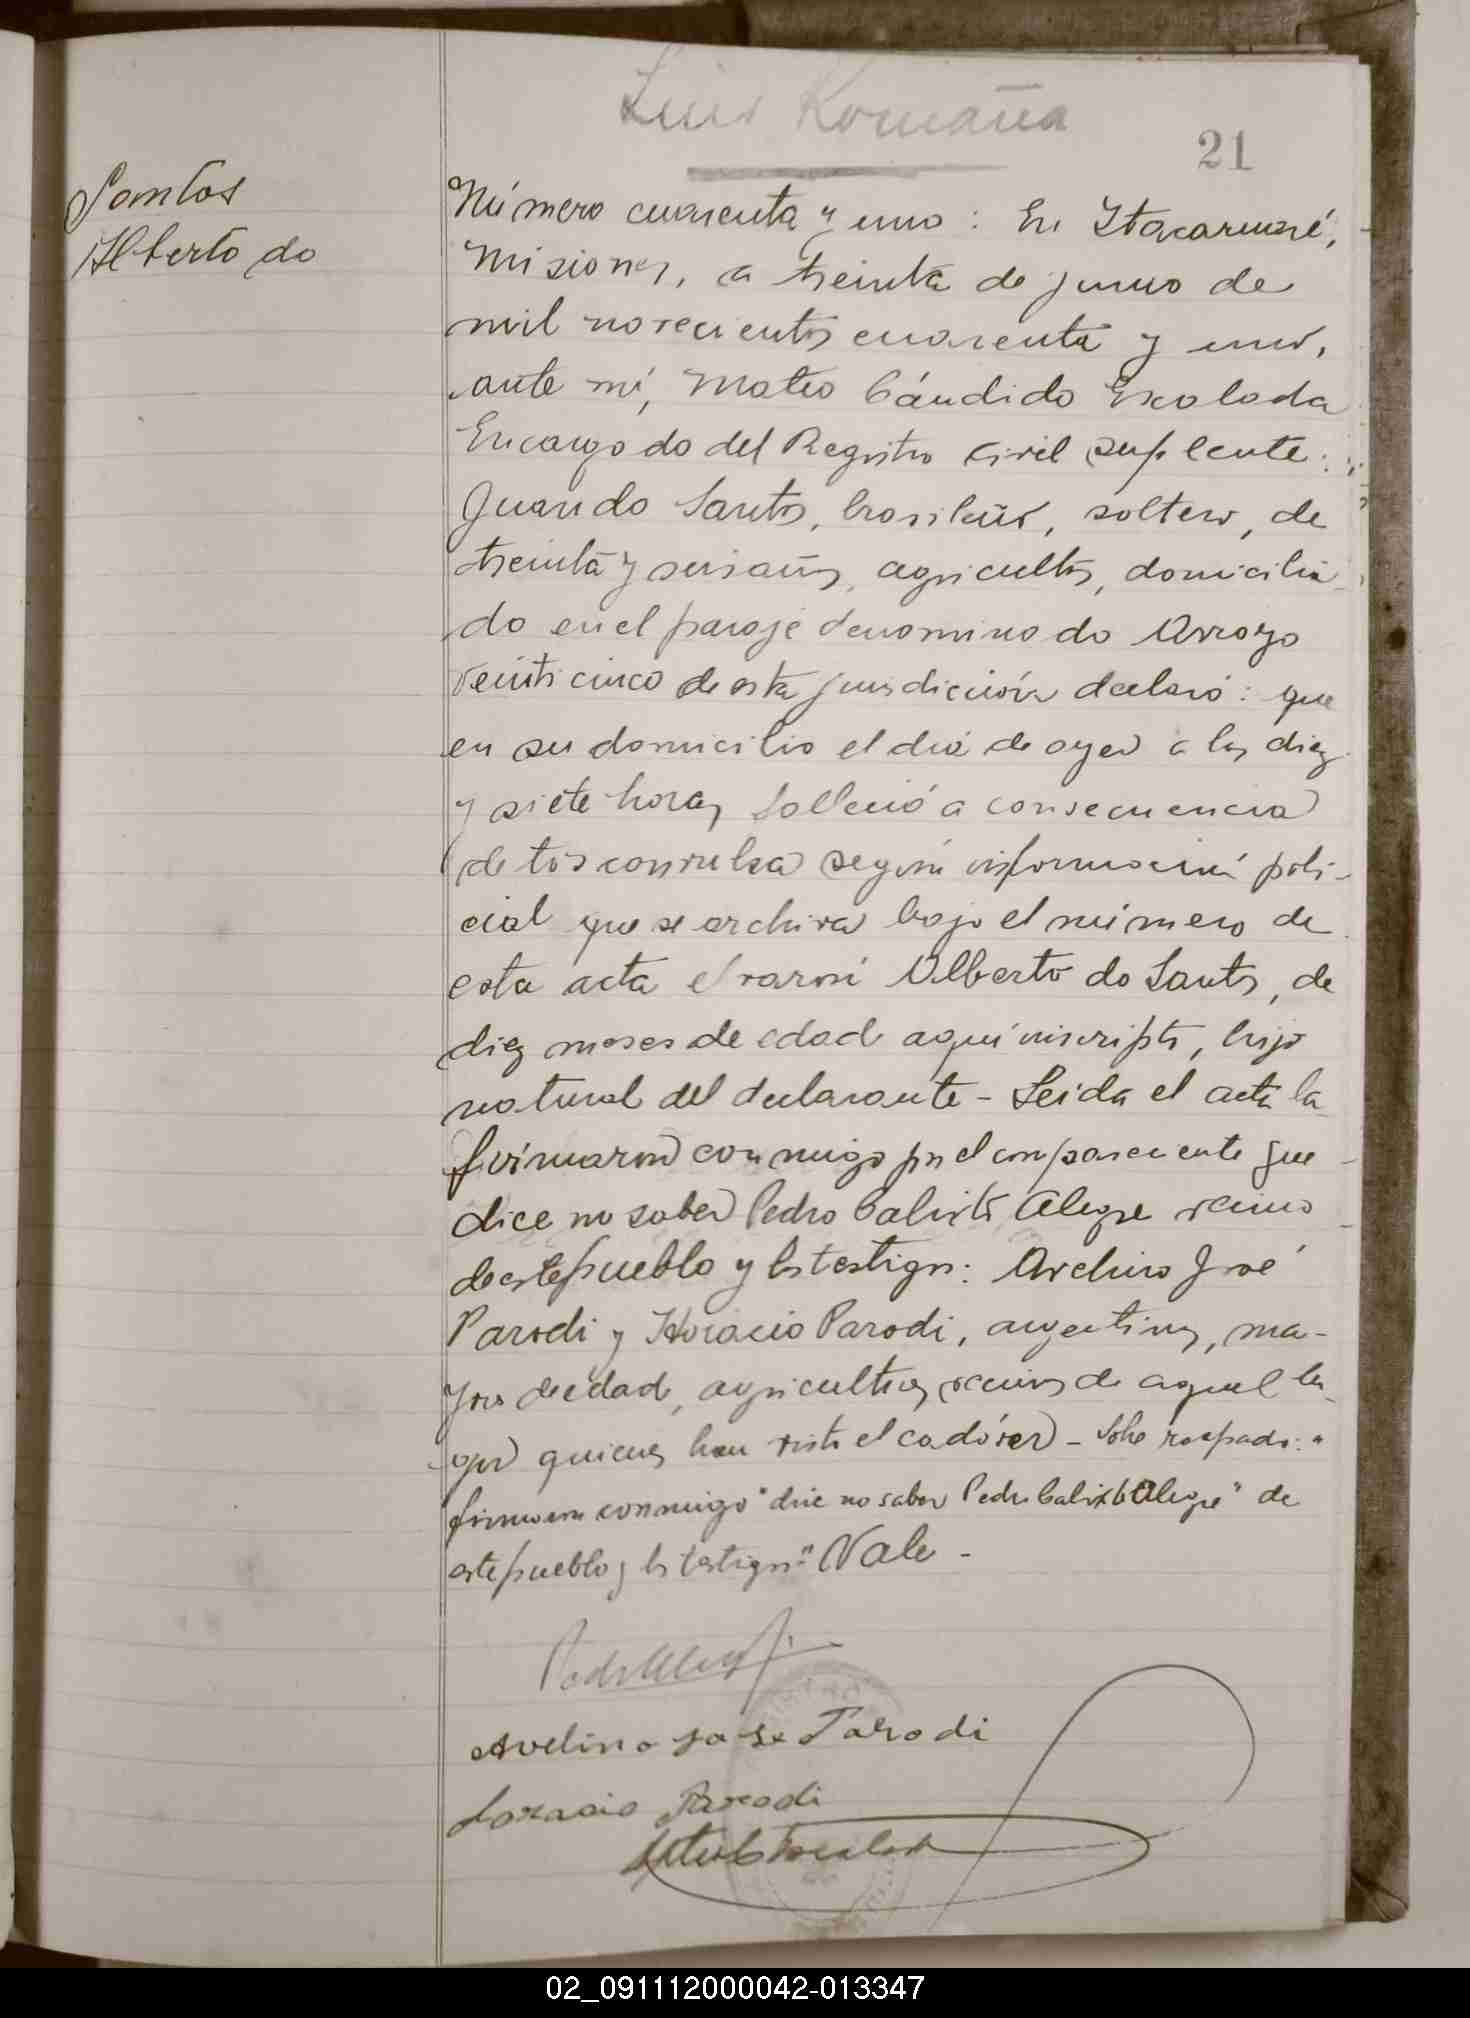 Luis Romaña
21
Santos
Alberto do
Número cuarenta y uno: En Itacaruaré,
Misiones, a treinta de junio de
mil novecientos cuarenta y uno,
ante mí, Mateo Cándido Escalada
Encargado del Registro Civil suplente:
Juando Santos, brasileño, soltero, de
treinta y seis años, agricultor, domicilia-
do en el paraje denominado Arroyo
veinticinco de esta jurisdicción declaró: que
en su domicilio el día de ayer a las diez
y siete horas falleció a consecuencia
de tos convulsa según información poli-
cial que se archiva bajo el número de
esta acta el varón Alberto do Santos, de
diez meses de edad aquí inscripto, hijo
natural del declarante - Leida el acta la
firmaron conmigo por el compareciente que
dice no saber Pedro Calixto Alegre vecino
de este pueblo y los testigos: Avelino José
Parodi y Horacio Parodi, argentinos, ma-
yores de edad, agricultores, vecinos de aquel lu-
gar quienes han visto el cadáver - Sobre raspado: "
firmaron conmigo" dice no saber Pedro Calixto Alegre" de
este pueblo y los testigos" Vale -
Avelino José Parodi
Horacio Parodi
02_091112000042-013347